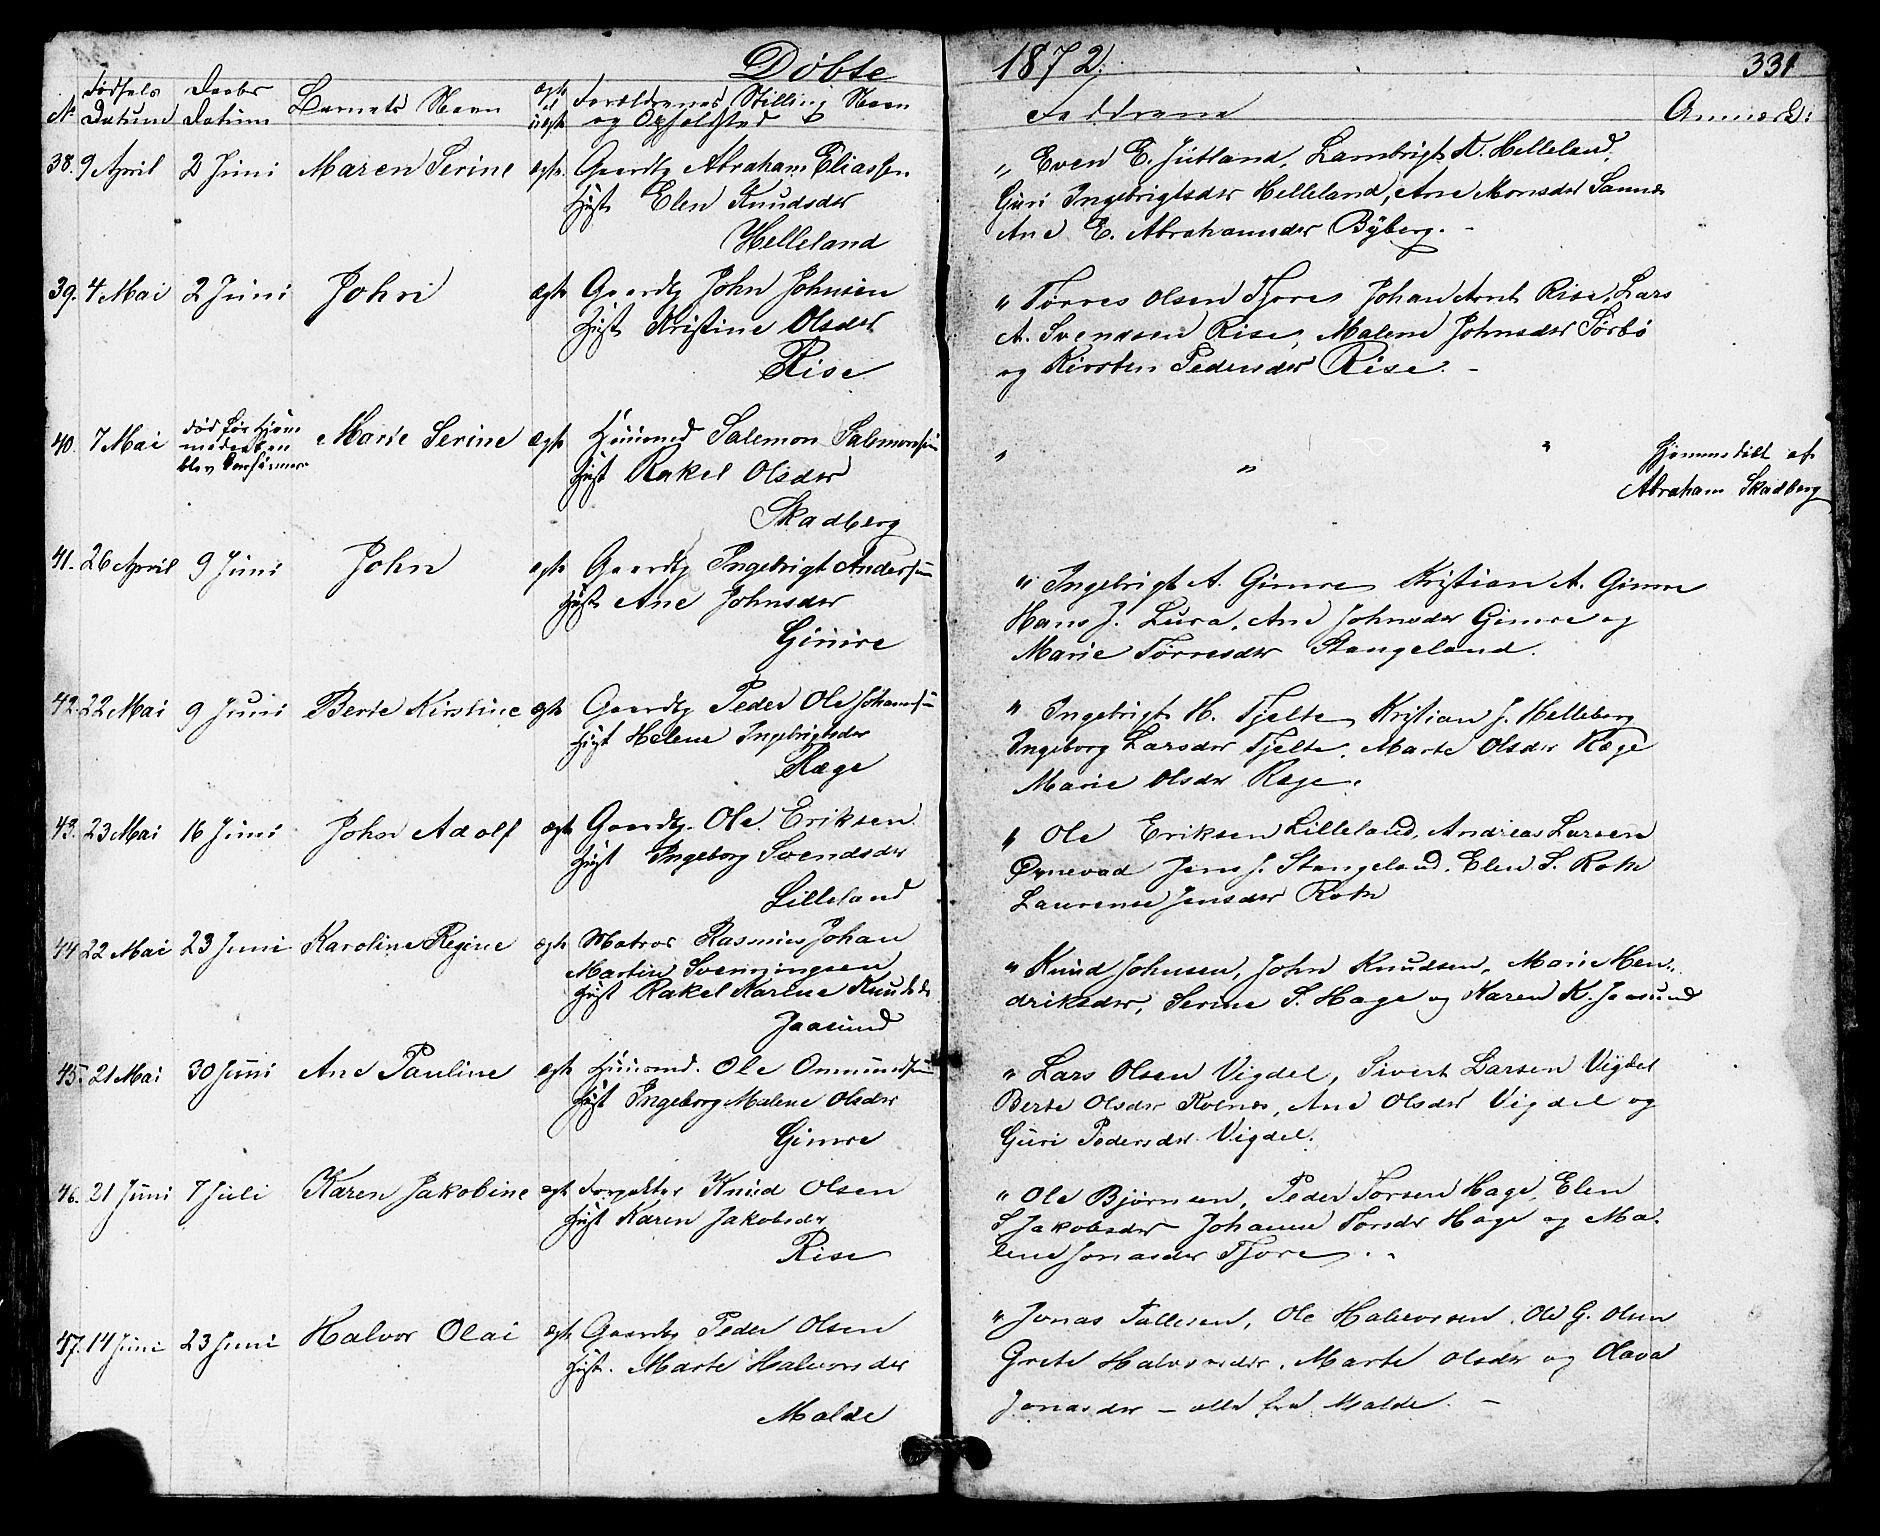 Døbte 1872. 331
No Fødsels Datum Daabs Datum Barnets Navn ægte el uægte Forældrenes Stilling Navn og Opholdsted Faddrene Anmærk:
38. 9 April 2 Juni Maren Serine ægte Gaardbr Abraham Eliassen
Hust Elen Knudsdtr
Helleland
" Even E. Jütland, Lambrigt K. Helleland,
Guri Ingebrigtsdtr Helleland, Ane Monsdtr Sannes
Ane E. Abrahamsdtr Byberg. -
39. 4 Mai 2 Juni John ægte Gaardbr John Johnsen
Hust Kristine Olsdtr
Rise
" Tørres Olsen Tjore, Johan Arnt Rise, Lars
A. Svendsen Rise, Malene Johnsdtr Sørbø
og Kirsten Pedersdtr Rise. -
40. 7 Mai død før Hjem
medaaben
blev
Marie Serine ægte Huusmd Salemon Salemonsen
Hust Rakel Olsdtr
Skadberg
" " "
Hjemmedøbt af
Abraham Skadberg
41. 26 April 9 Juni John ægte Gaardbr Ingebrigt Andersen
Hust Ane Johnsdtr
Gimre
" Ingebrigt A. Gimre, Kristian A. Gimre
Hans J. Lura, Ane Johnsdtr Gimre og
Marie Tørresdtr Stangeland.
42. 22 Mai 9 Juni Berte Kirstine ægte Gaardbr Peder Ole Johannsen
Hust Helene Ingebrigtsdtr
Ræge
" Ingebrigt H. Tjelte, Kristian J. Helleberg
Ingeborg Larsdtr Tjelte, Marte Olsdtr Ræge
Marie Olsdtr Ræge.
43. 23 Mai 16 Juni John Adolf ægte Gaardbr. Ole Eriksen
Hust Ingeborg Svendsdtr
Lilleland
" Ole Eriksen Lilleland, Andreas Larsen
Ørnevad Jens J. Stangeland, Elen S. Roth
Laurense Jensdtr Roth
44. 22 Mai 23 Juni Karoline Regine ægte Matros Rasmus Johan
Martin Svenningsen
Hust Rakel Karine Knudsdtr
Jaasund
" Knud Johnsen, John Knudsen, Marie Hen-
driksdtr, Serine S. Hage og Karen K. Jaasund
45. 21 Mai 30 Juni Ane Pauline ægte Huusmd. Ole Ommundsen
Hust Ingeborg Malene Olsdtr
Gimre
" Lars Olsen Vigdel, Sivert Larsen Vigdel
Berte Olsdtr Kolnæs, Ane Olsdtr Vigdel og
Guri Pedersdtr Vigdel.
46. 21 Juni 7 Juli Karen Jakobine ægte Forpakter Knud Olsen
Hust Karen Jakobsdtr
Rise
" Ole Bjørnsen, Peder Torsen Hage, Elen
S Jakobsdtr Johanne Torsdtr Hage og Ma-
lene Jonasdtr Tjore. -
47. 14 Juni 23 Juni Halvor Olai ægte Gaardbr Peder Olsen
Hust. Marte Halvorsdtr
Malde
" Jonas Tallesen, Ole Halvorsen, Ole G. Olsen
Grete Halvorsdtr, Marte Olsdtr og Olava
Jonasdtr - alle fra Malde. -